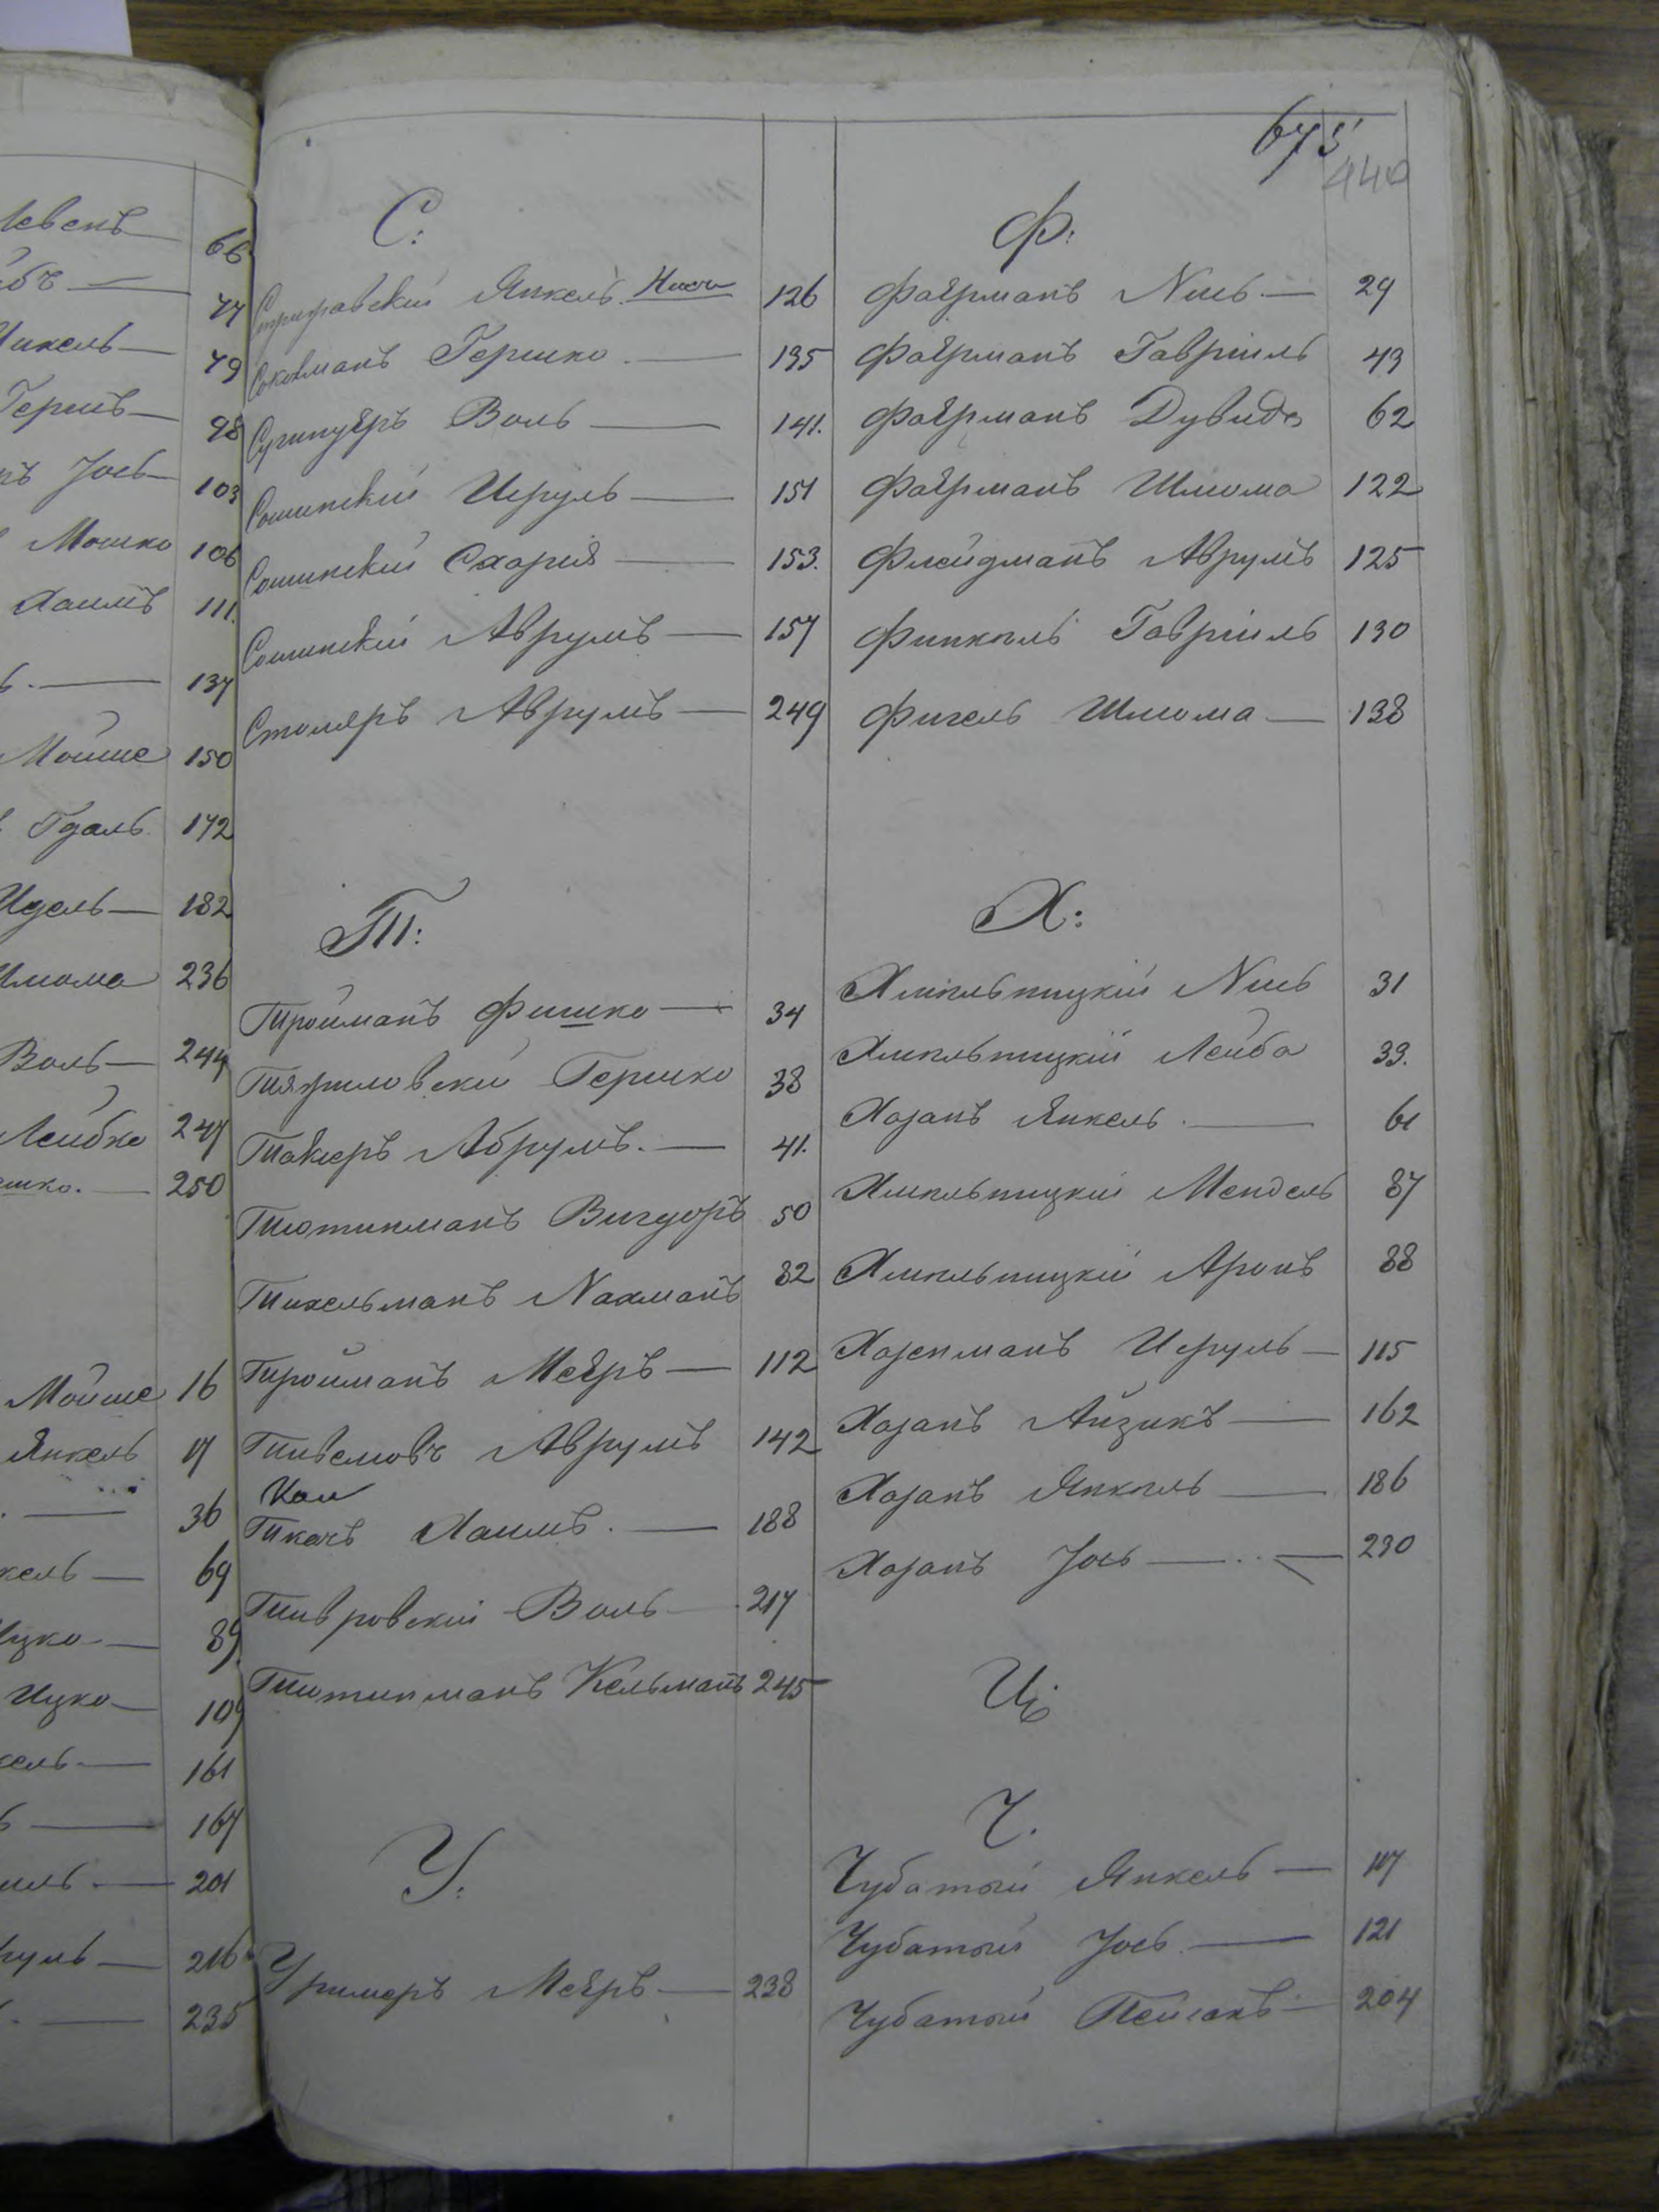 левенъ 66
77
Янкель 79
Герш 98
Іось 103
Мошко 106
Хаимъ 111.
137
Мойше 150
Гдаль 172
Идель 182
Шлома 236
Воль 244
Лейбко 247
250
Мойше 16
Янкель 17
36
69
Ицко 89.
Ицко 109
161
167
201
216
235
675
440
С:
Янкель 126
Гершко 135
Воль 141.
Сошинскій Исруль 151
Сошинскій Схарія 153.
Сошинскій Аврумъ 157
Столяръ Аврумъ 249
Т:
Тройманъ Фишко 34
Гершко 38
Абрумъ. 41.
Тютинманъ Вигдоръ 50
Тихельманъ Nахманъ 82
Тройманъ Меѣръ 112
Аврумъ 142
Ткачъ Хаимъ. 188
Тивровскій Воль 217
Тютинманъ Кельманъ 245
У:
Уримеръ Меѣръ 238
Ф:
Фаѣрманъ Nись 29
Фаѣрманъ Гавріиль 43
Фаѣрманъ Дувидъ 62
Фаѣрманъ Шлома 122
Флейдманъ Аврумъ 125
Финкель Гавріиль 130
Фигель Шлома 138
Х:
Хмельницкій Nись 31
Хмельницкій Лейба 33.
Хазанъ Янкель. 61
Хмельницкій Мендель 87
Хмельницкій Аронъ 88
Хозенманъ Исруль 115
Хазанъ Айзикъ 162
Хазанъ Янкель 186
Хазанъ Іось 230
Ц:
Ч.
Чубатый Янкель 117
Чубатый Іось. 121
Чубатый Пейсахъ 204